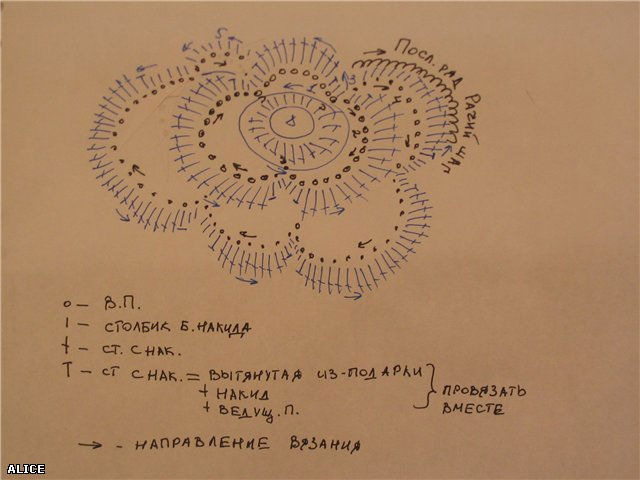 5
Посл. ряд
Рачий шаг
1
3
4
2
8
о – В.П.
I – СТОЛБИК Б. НАКИДА
† – СТ. С НАК.
Т – СТ С НАК. = ВЫТЯНУТАЯ ИЗ-ПОД АРКИ
+ НАКИД
+ ВЕДУЩ. П.
ПРОВЯЗАТЬ
ВМЕСТЕ
→ - НАПРАВЛЕНИЕ ВЯЗАНИЯ
ALICE